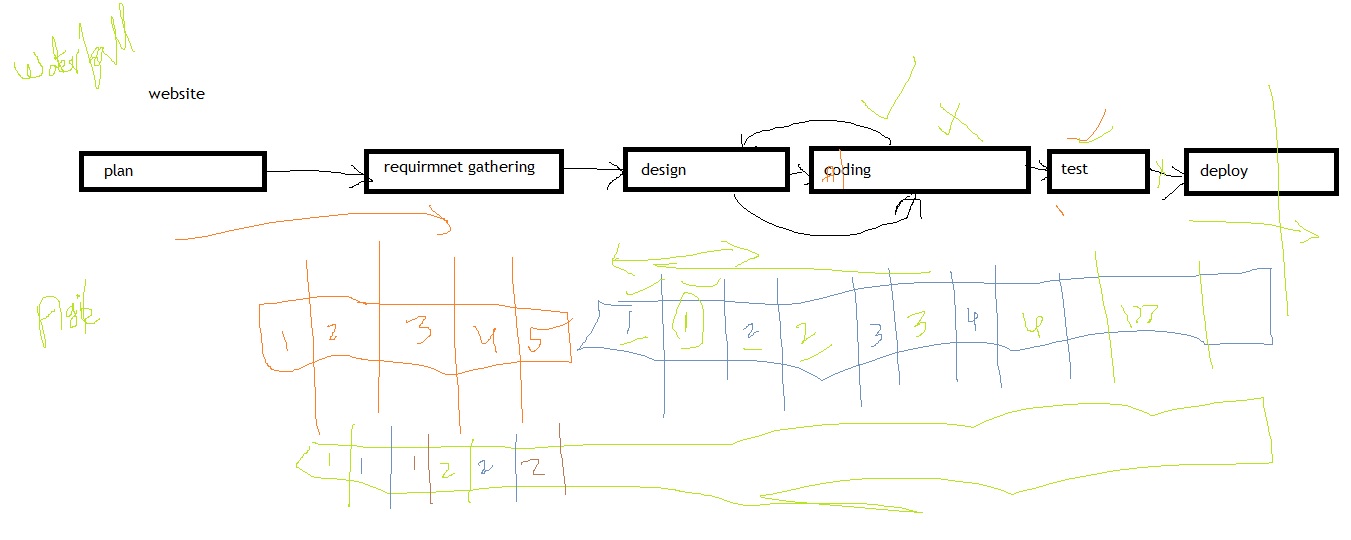 waterfall
website
plan
requirmnet gathering
design
coding
test
deploy
1 2 3 4 5
1 1 2 2 3 3 4 4
1 1 1 2 2 2